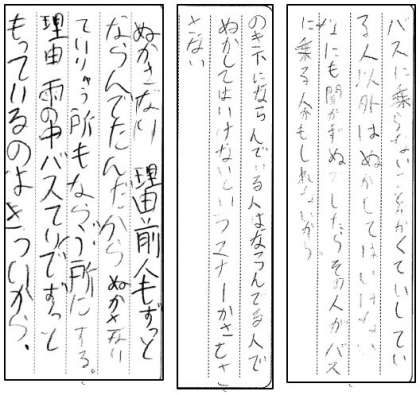 バスに乗らないことがかくていしてい
る人以外はぬかしてはいけない
にも聞かずぬかしたらその人がバス
に乗る人かもしれないから
のき下にならんでいる人はならんでる人で
ぬかしてはいけないというマナーが
さない
ぬかさない 理由 前の人もずっと
ならんでたんだから ぬかさない
ていりゅう所もならぶ所にする。
理由 雨の中バスていでずっと
もっているのはきついから。